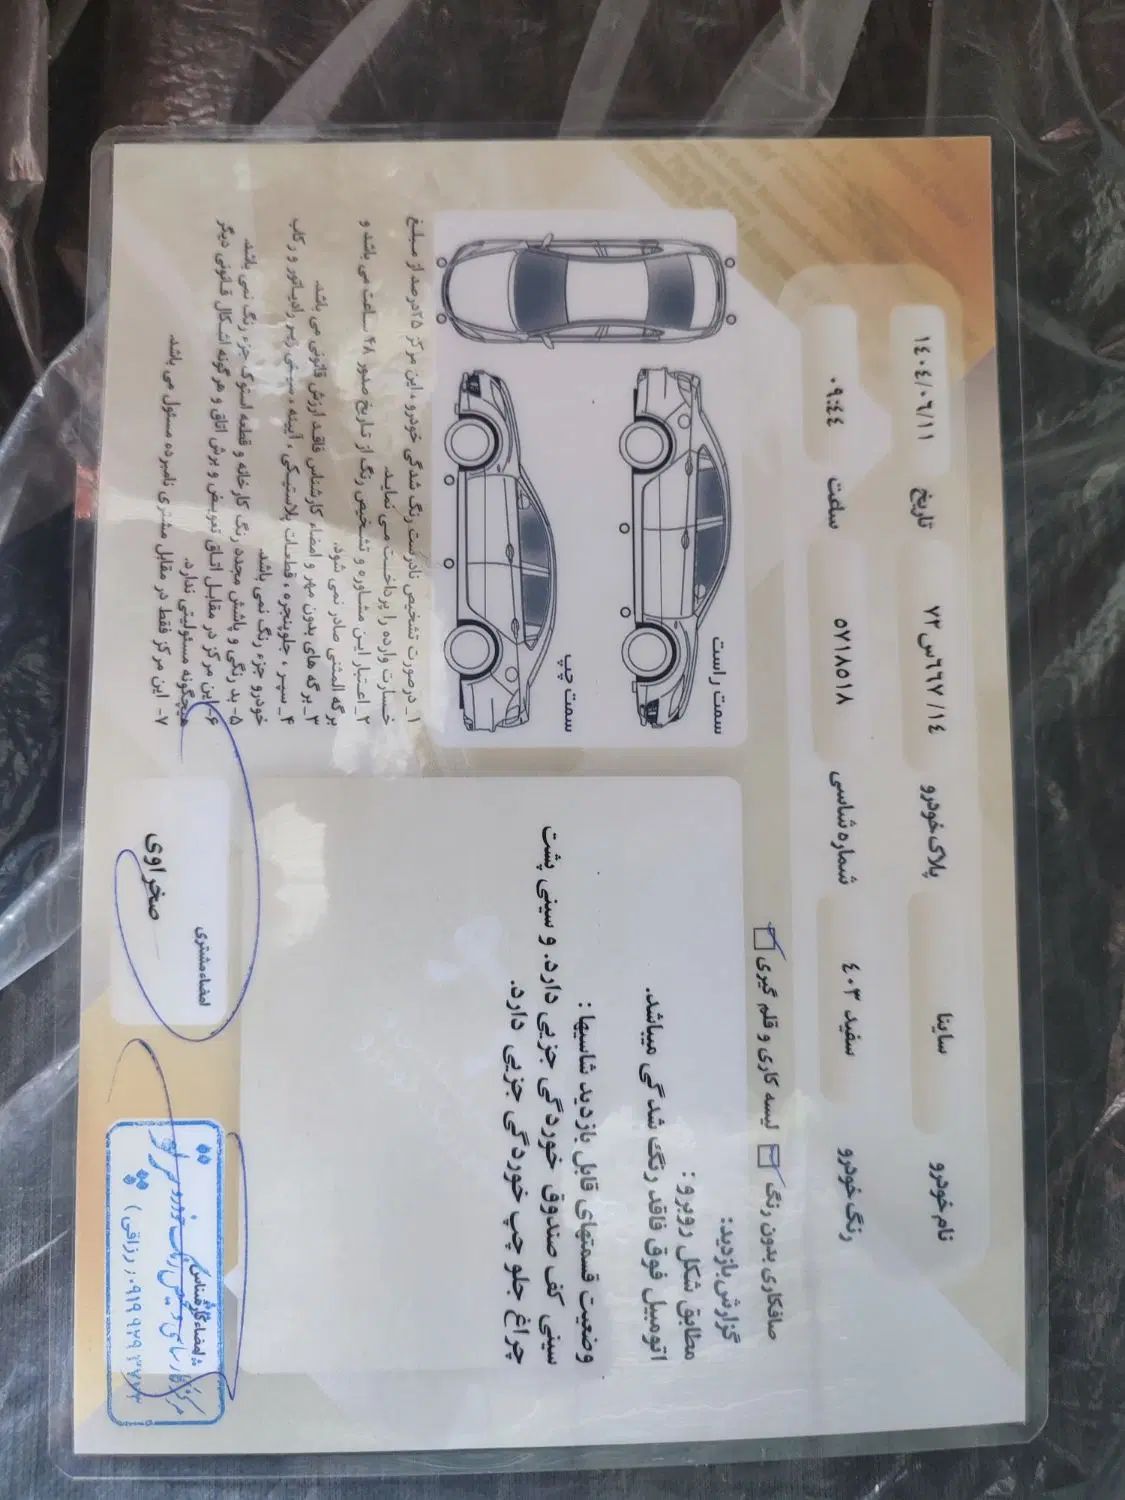 نام خودرو ساینا پلاک خودرو ۱۴/ ۶۶۷س۷۳ تاریخ ۱۴۰۴/۰۶/۱۱
رنگ خودرو سفید ۴۰۳ شماره شاسی ۵۷۱۸۵۱۸ ساعت ۰۹:۴۴
صافکاری بدون رنگ لیسه کاری و قلم گیری
گزارش بازدید:
مطابق شکل روبرو :
اتومبیل فوق فاقد رنگ شدگی میباشد.
وضعیت قسمتهای قابل بازدید شاسیها :
سینی کف صندوق خوردگی جزیی دارد. و سینی پشت
چراغ جلو چپ خوردگی جزیی دارد.
سمت راست
سمت چپ
۱_ درصورت تشخیص نادرست رنگ شدگی خودرو ،این مرکز ۲۵درصد از مبلغ
خسارت وارده را پرداخت می نماید.
۲_ اعتبار این مشاوره و تشخیص رنگ از تاریخ صدور ۴۸ ساعت می باشد و
برگه المثنی صادر نمی شود.
۳_ برگه های بدون مهر و امضاء کارشناس فاقد ارزش قانونی می باشد.
۴_ سپر ، جلوپنجره ، قطعات پلاستیکی ، آیینه ، سینی زیر رادیاتور و رکاب
خودرو جزء رنگ نمی باشد.
۵- بد رنگی و پاشش مجدد رنگ کارخانه و قطعه استوک جزء رنگ نمی باشد.
۶- این مرکز در مقابل اتاق تعویض و برش اتاق و هرگونه اشکال قانونی دیگر
هیچگونه مسئولیتی ندارد.
۷- این مرکز فقط در مقابل مشتری نامبرده مسئول می باشد.
امضاء مشتری
صخراوی
امضاء کارشناس
مرکز کارشناسی و تشخیص رنگ خودرو
(رزاقی)